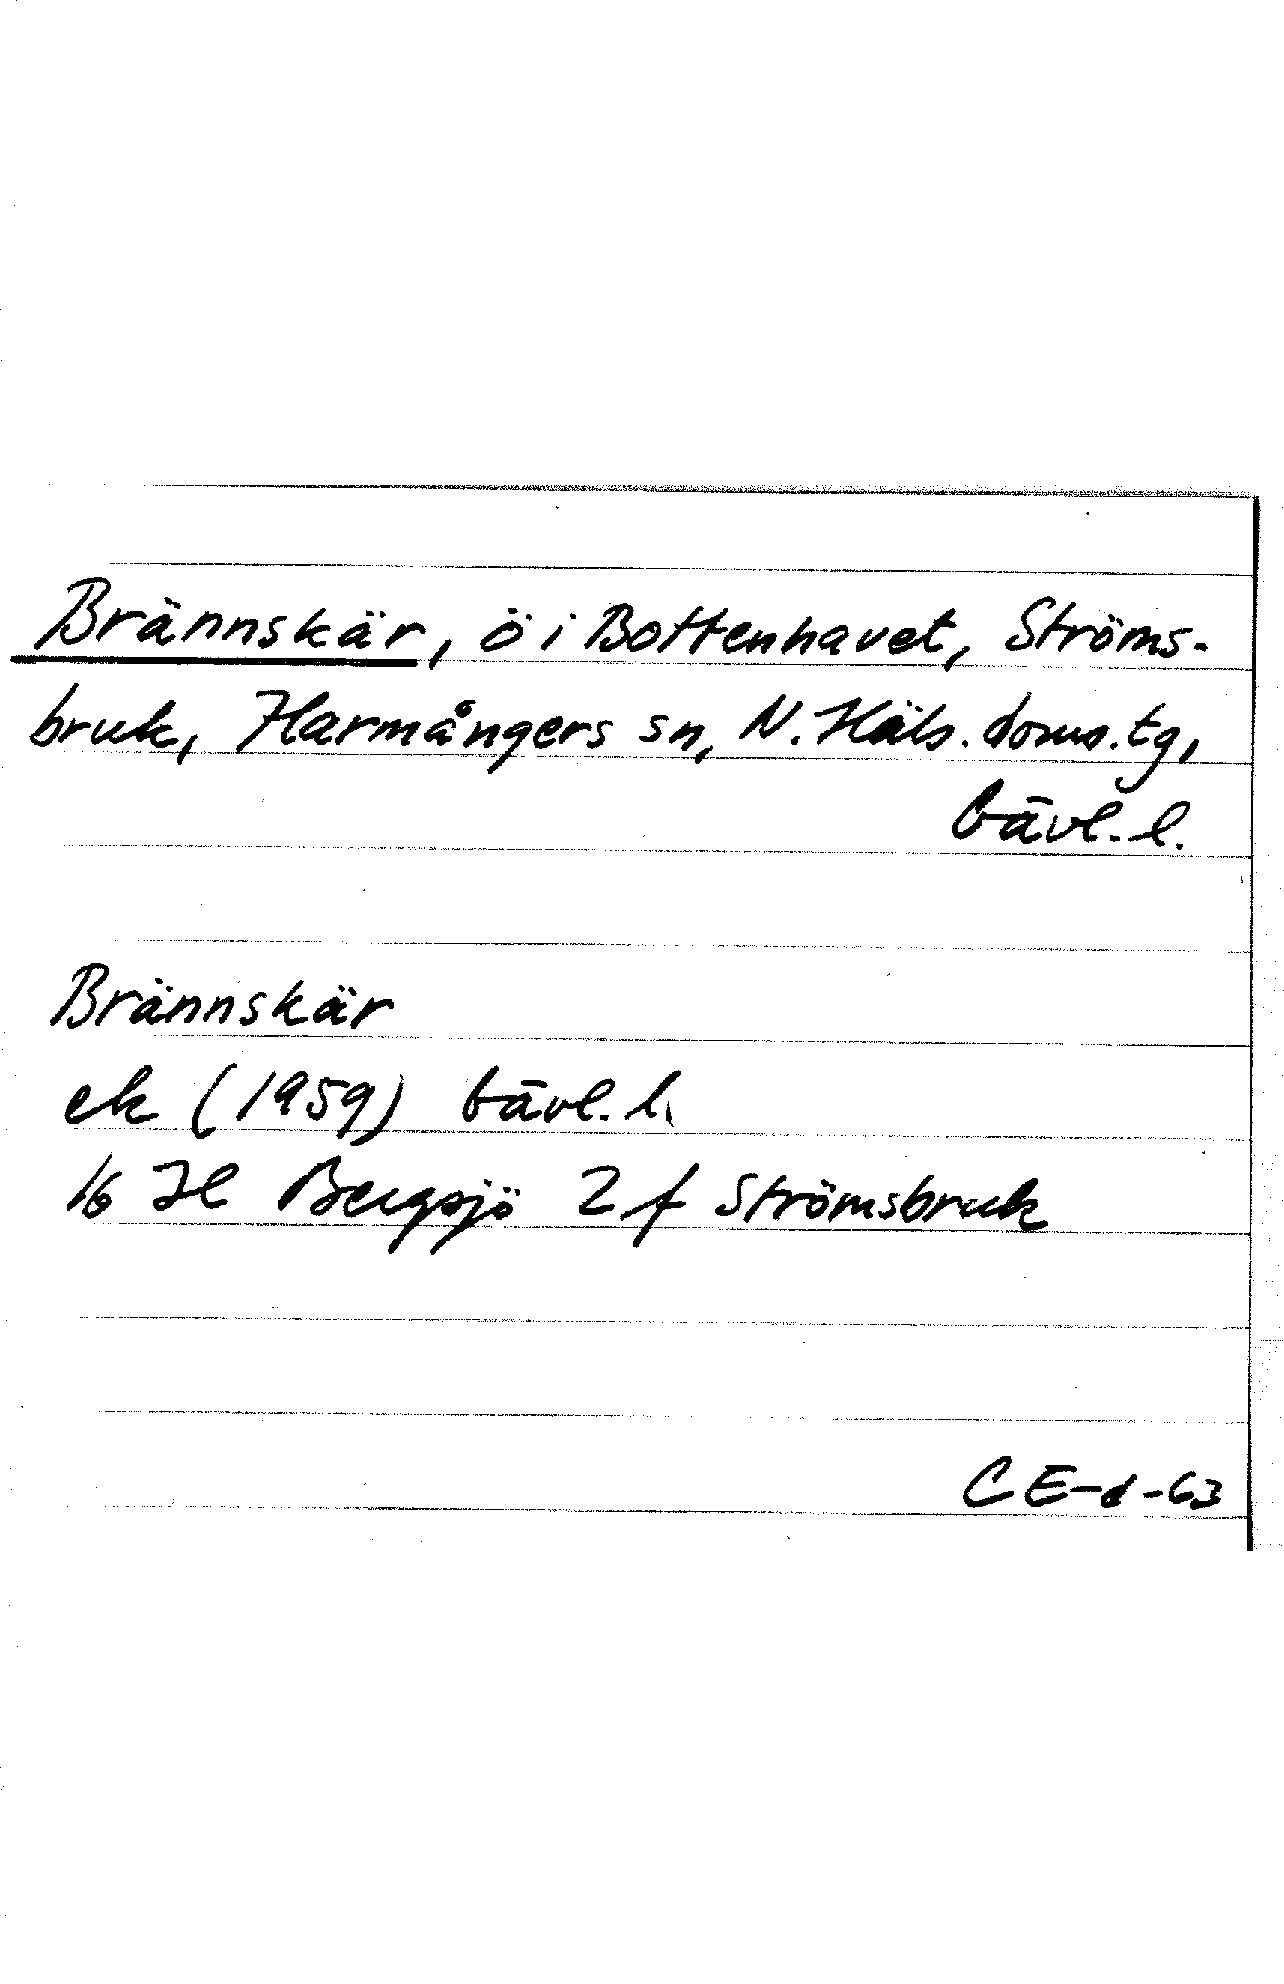 Brännskär, ö i Bottenhavet, Ströms-
bruk, Harmångers sn, N. Häls. doms. tg,
Gävl. l.
Brännskär
ek (1959) Gävl. l.
16 H Bergsjö 2 f Strömsbruk
C E-d -63